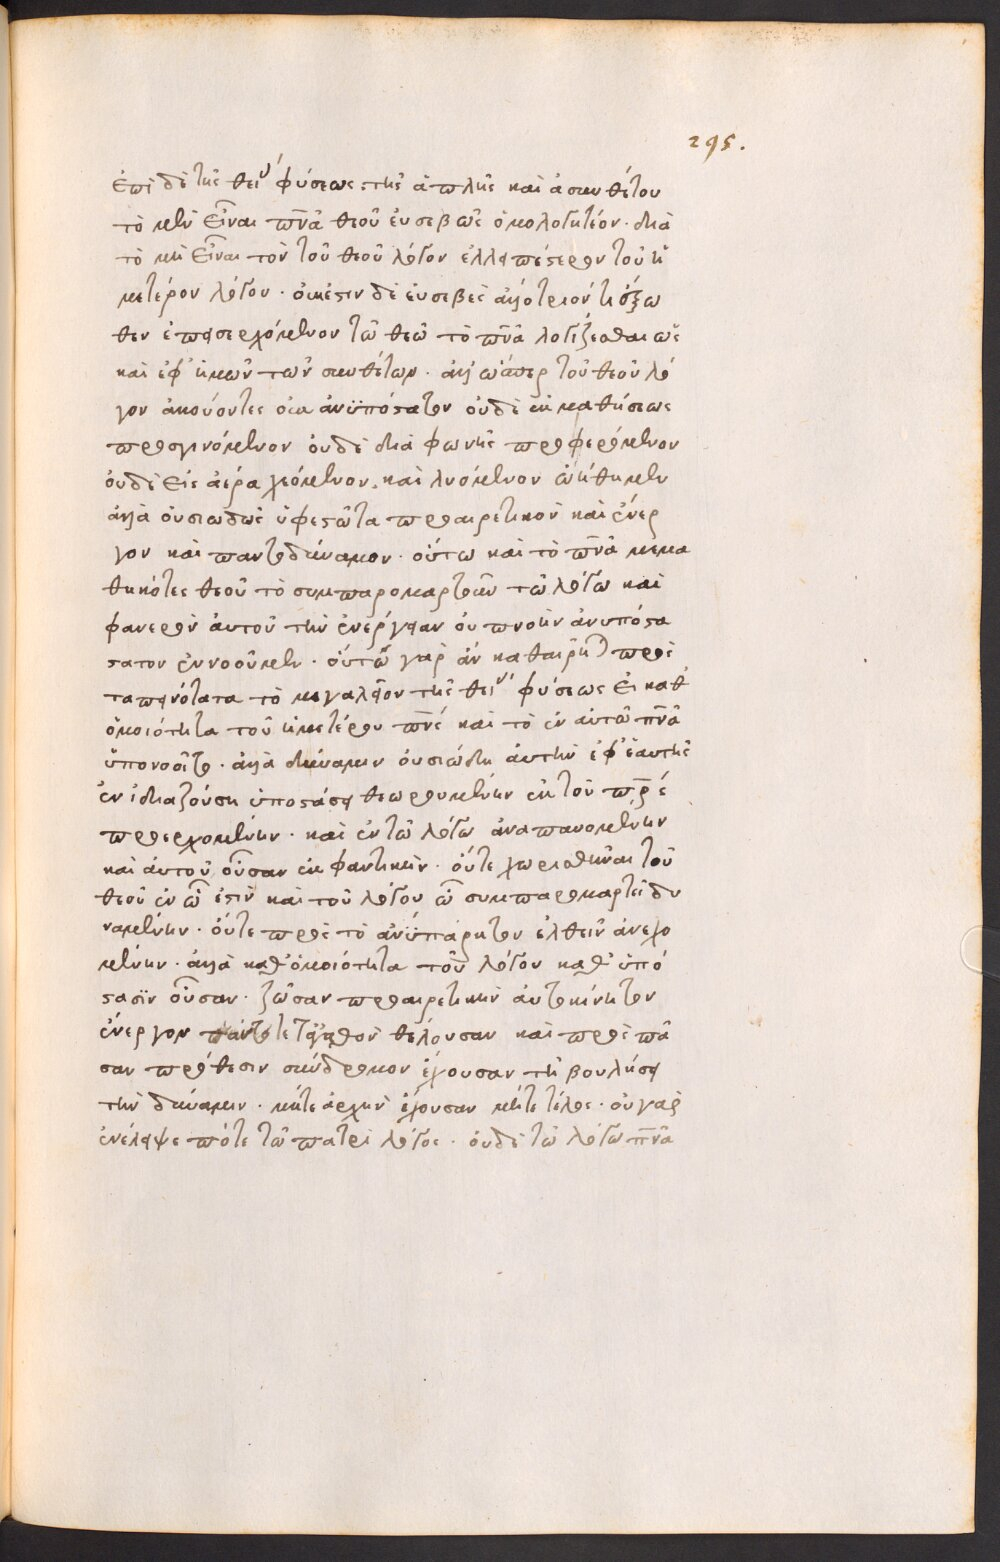 295.
ἐπὶ δὲ τῆς θείας φύσεως, τῆς ἁπλῆς καὶ ἀσυνθέτου
τὸ μὲν εἶναι πν̅α̅ θεοῦ εὐσεβῶς ὁμολογητέον· διὰ
τὸ μὴ εἶναι τὸν τοῦ θεοῦ λόγον ἐλλειπέστερον τοῦ ἡ
μετέρου λόγου· οὐκέστιν δὲ εὐσεβὲς ἀλλότριόν τι ἔξω
θεν ἐπεισερχόμενον τῶ θεῶ τὸ πν̅α̅ λογίζεσθαι ὡς
καὶ ἐφ' ἡμῶν τῶν συνθέτων· ἀλλ' ὥσπερ τοῦ θεοῦ λό
γον ἀκούοντες οὐκ ἀνϋπόστατον οὐδὲ ἐκ μαθήσεως
προσγινόμενον οὐδὲ διὰ φωνῆς προφερόμενον
οὐδὲ εἰς ἀέρα χεόμενον. καὶ λυόμενον ὠήθημεν
ἀλλὰ οὐσιωδῶς ὑφεστῶτα προαιρετικὸν καὶ ἐνερ
γὸν καὶ παντοδύναμον· οὕτω καὶ τὸ πν̅α̅ μεμα
θηκότες θεοῦ τὸ συμπαρομαρτοῦν τῶ λόγω καὶ
φανεροῦν αὐτοῦ τὴν ἐνέργειαν οὐ πνοὴν ἀνυπόστα
στατον ἐννοοῦμεν· οὕτω γὰρ ἂν καθαιρῆται πρὸς
ταπεινότατα τὸ μεγαλεῖον τῆς θείας φύσεως εἰ καθ'
ὁμοιότητα τοῦ ἡμετέρου πν̅ς καὶ τὸ ἐν αὐτῶ πν̅α̅
ὑπονοοῖτο· ἀλλὰ δύναμιν οὐσιώδη αὐτὴν ἐφ' ἑαυτῆς
ἐν ἰδιαζούση ὑποστάσει θεωρουμένην ἐκ τοῦ πρ̅ς
προερχομένην· καὶ ἐν τῶ λόγω ἀναπαυομένην
καὶ αὐτοῦ οὖσαν ἐκφαντικὴν· οὔτε χωρισθῆναι τοῦ
θεοῦ ἐν ὧ ἐστὶν καὶ τοῦ λόγου ὧ συμπαρομαρτεῖ δυ
ναμένην· οὔτε πρὸς τὸ ἀνΰπαρκτον ἐλθεῖν ἀνεχο
μένην· ἀλλὰ καθ' ὁμοιότητα τοῦ λόγου καθ' ὑπό
στασϊν οὖσαν· ζῶσαν προαιρετικὴν αὐτοκίνητον
ἐνεργὸν πάντοτε τἀγαθὸν θέλουσαν καὶ πρὸς πᾶ
σαν πρόθεσιν σύνδρομον ἔχουσαν τῆ βουλήσει
τὴν δύναμιν· μήτε ἀρχὴν ἔχουσαν μήτε τέλος· οὐ γὰρ
ἐνέλειψε πότε τῶ πατρὶ λόγος· οὐδὲ τῶ λόγω πν̅α̅